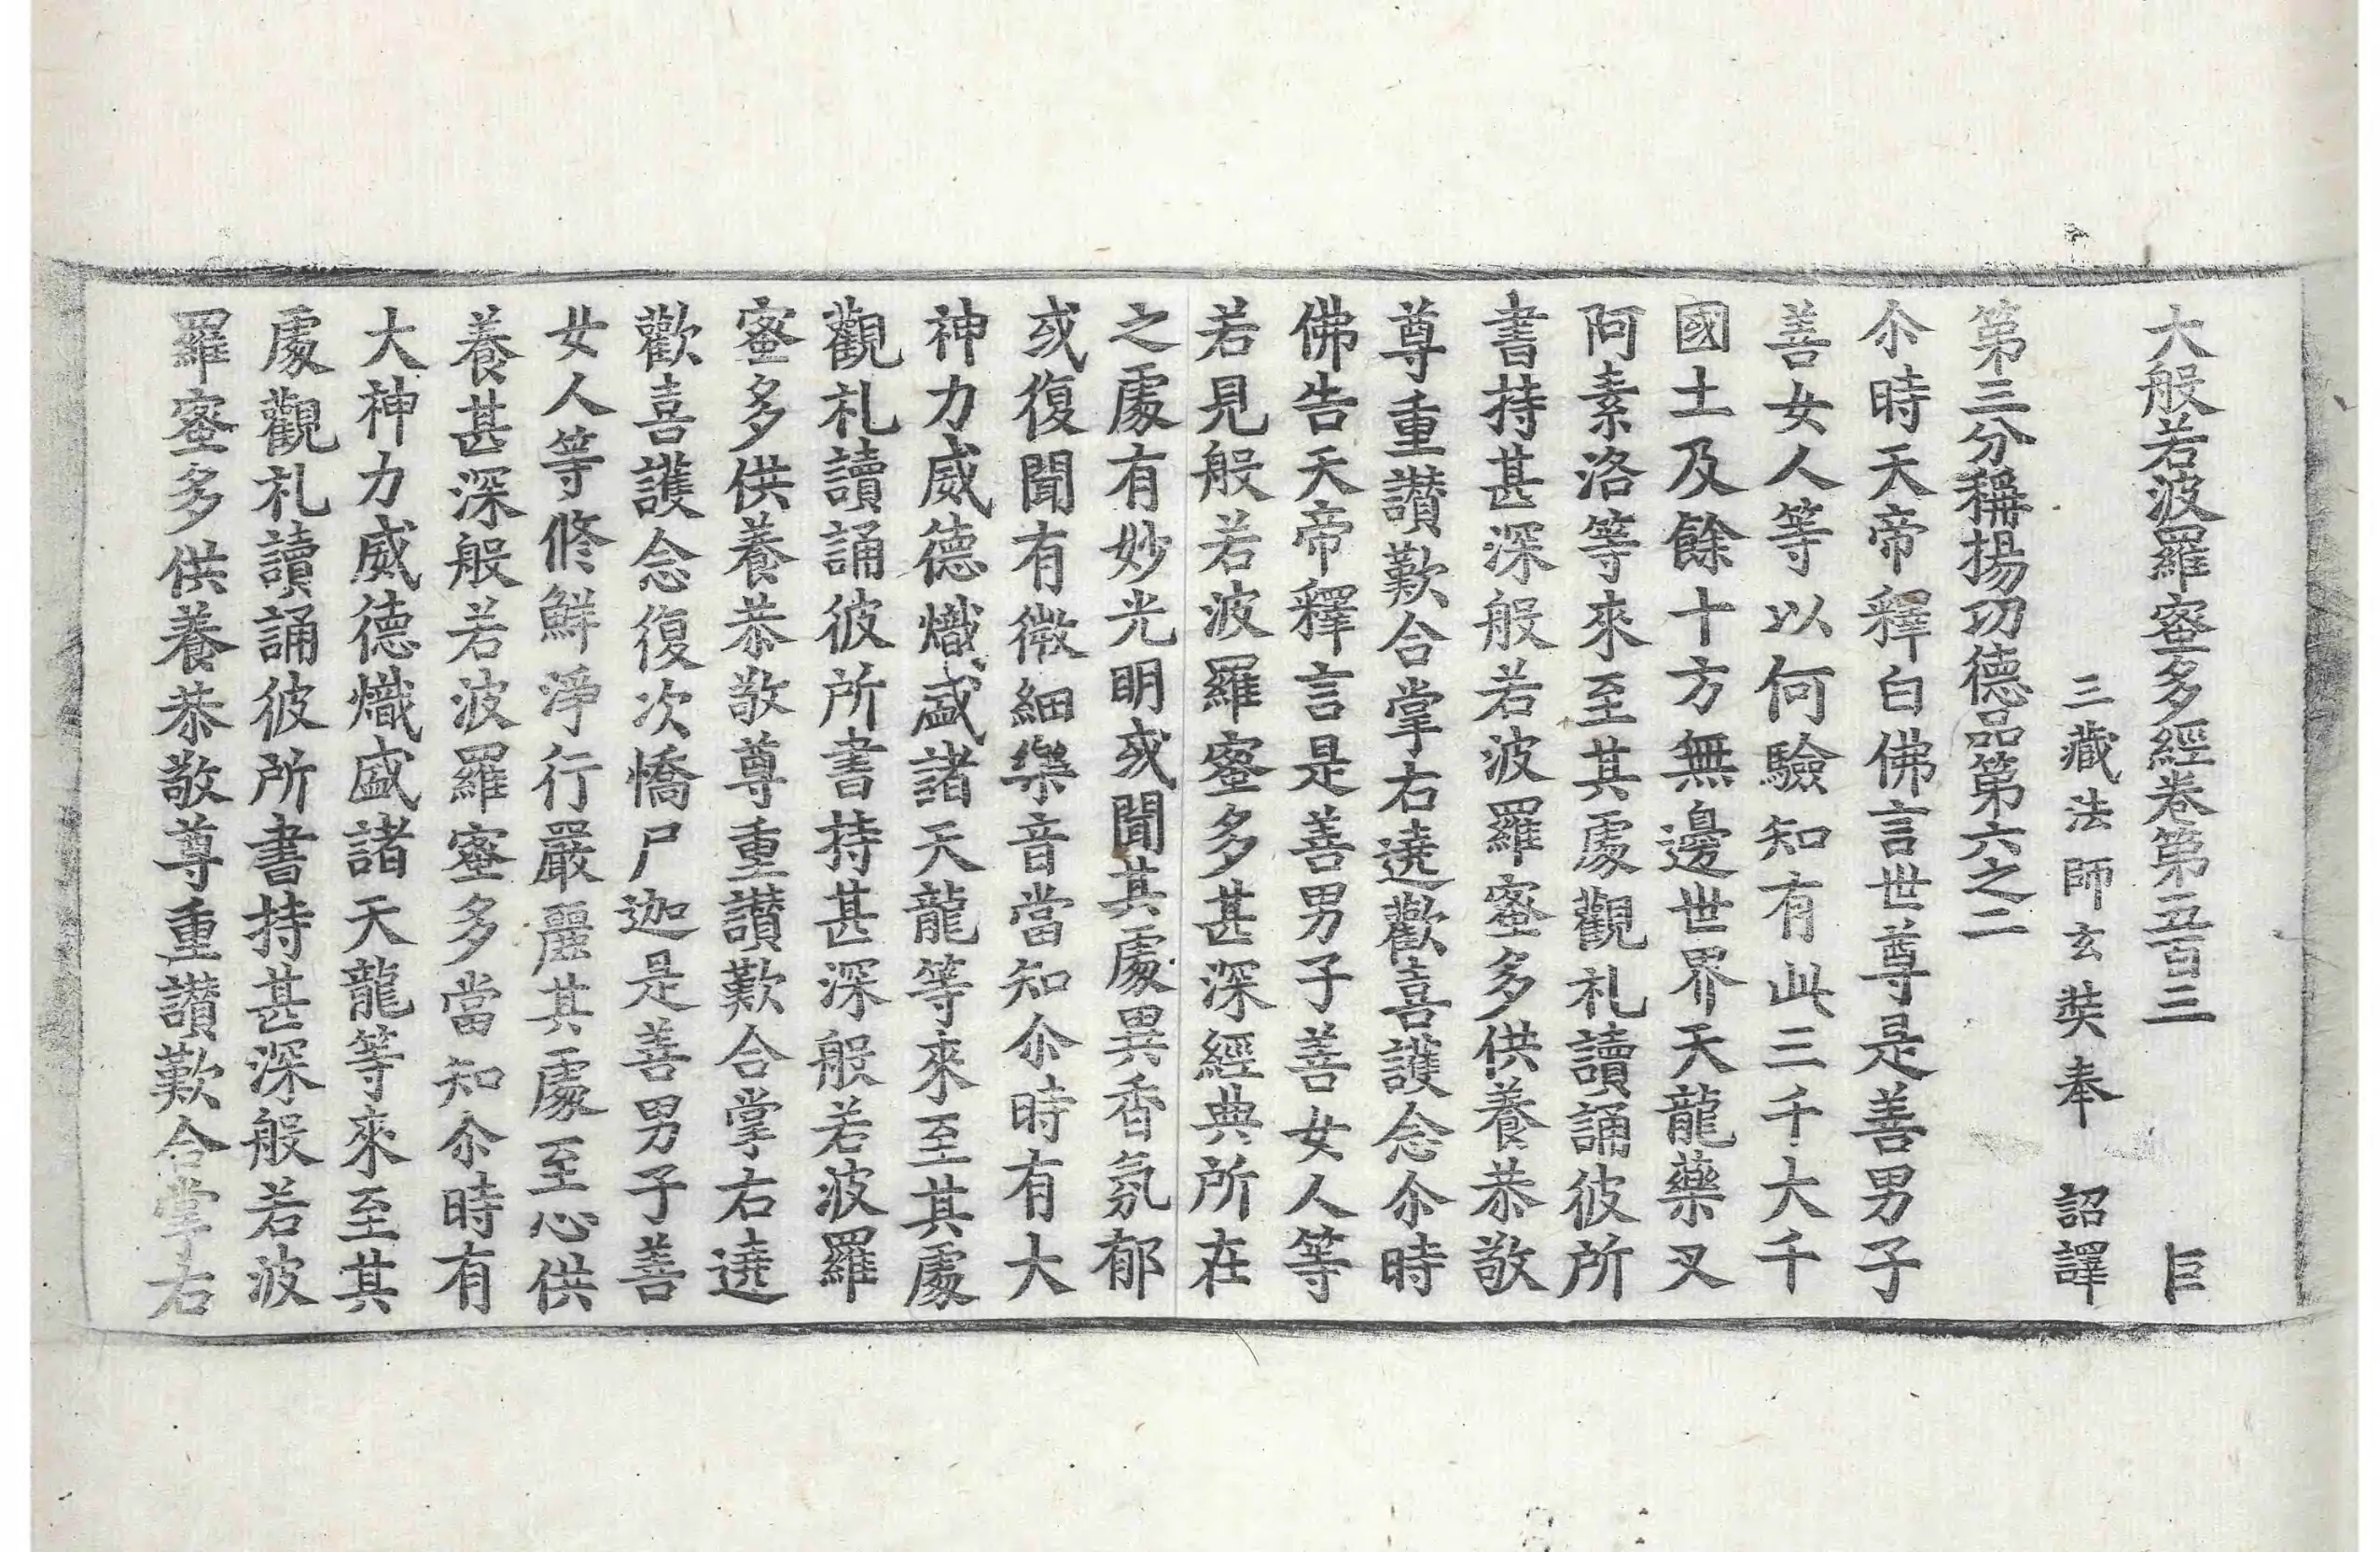 大般若波羅蜜多經卷第五百三 巨
三藏法師玄奘奉 詔譯
第三分稱揚功德品第六之二
尒時天帝釋白佛言世尊是善男子
善女人等以何驗知有此三千大千
國土及餘十方無邊世界天龍藥叉
阿素洛等來至其處觀礼讀誦彼所
書持甚深般若波羅蜜多供養恭敬
尊重讃歎合掌右遶歡喜護念尒時
佛告天帝釋言是善男子善女人等
若見般若波羅蜜多甚深經典所在
之處有妙光明或聞其處異香氛郁
或復聞有微細樂音當知尒時有大
神力威德熾盛諸天龍等來至其處
觀礼讀誦彼所書持甚深般若波羅
蜜多供養恭敬尊重讃歎合掌右遶
歡喜護念復次憍尸迦是善男子善
女人等修鮮淨行嚴麗其處至心供
養甚深般若波羅蜜多當知尒時有
大神力威德熾盛諸天龍等來至其
處觀礼讀誦彼所書持甚深般若波
羅蜜多供養恭敬尊重讃歎合掌右